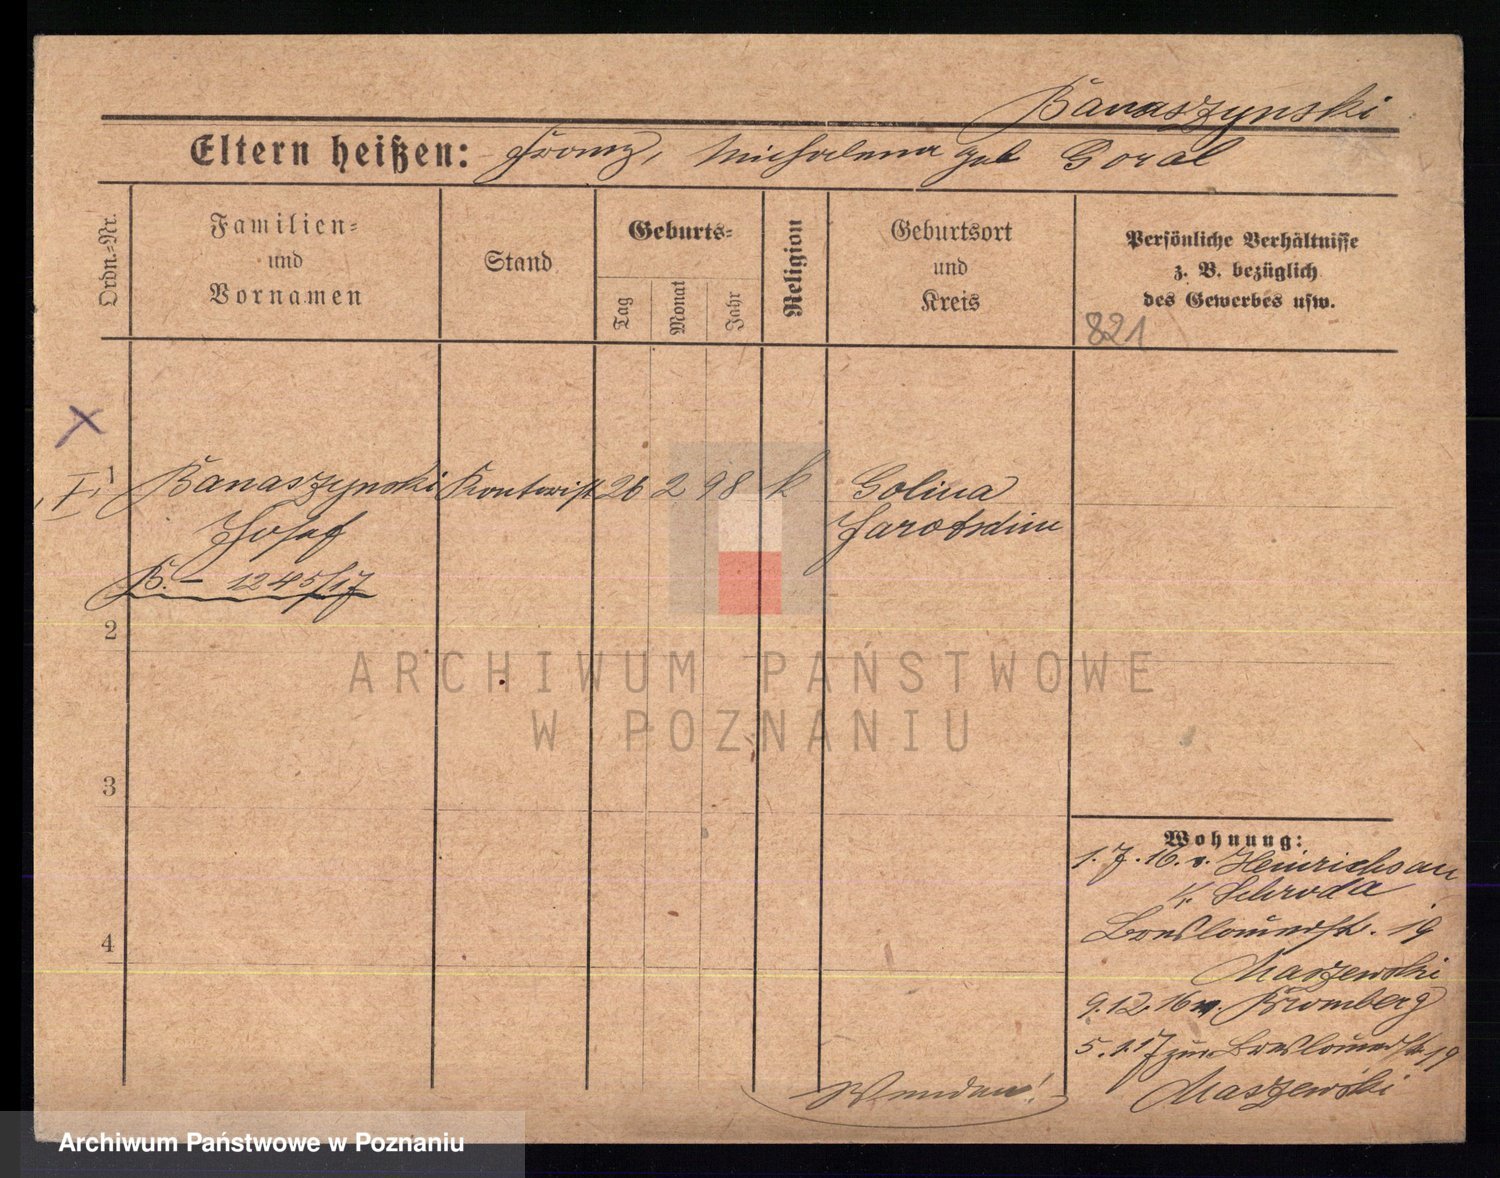 Banaszynski
Eltern heißen: Franz, Michalena geb Goral
Ordn.-Nr.
Familien-
und
Vornamen
Stand
Geburts-
Tag
Monat
Jahr
Religion
Geburtsort
und
Kreis
Persönliche Verhältnisse
z. B. bezüglich
des Gewerbes usw.
821
X
I, 1 Banaszynski Kontorist 26 2 98 k Golina
Josef Jarotschin
B. - 1245/17
2
3
4
Wohnung:
1. 7. 16. v. Heinrichsau
K. Schroda
Breslauerstr. 19
Maszewski
9.12.16 v. Bromberg
5. 1. 17 zur Breslauerstr 19
Maszewski
Wenden!
ARCHIWUM PAŃSTWOWE
W POZNANIU
Archiwum Państwowe w Poznaniu